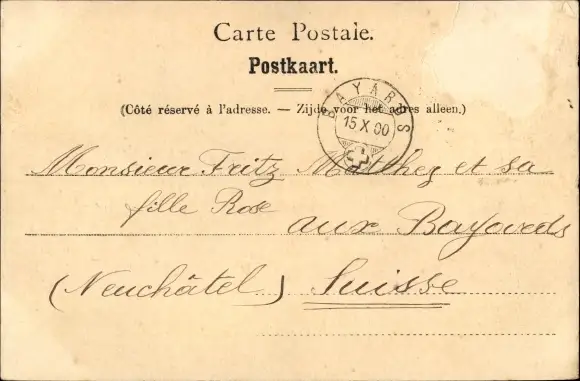 Carte Postale.
Postkaart.
(Côté réservé à l'adresse. — Zijde voor het adres alleen.)
BAYARDS
15 X 00
Monsieur Fritz Matthey et sa
fille Rose
aux Bayards
(Neuchâtel) Suisse